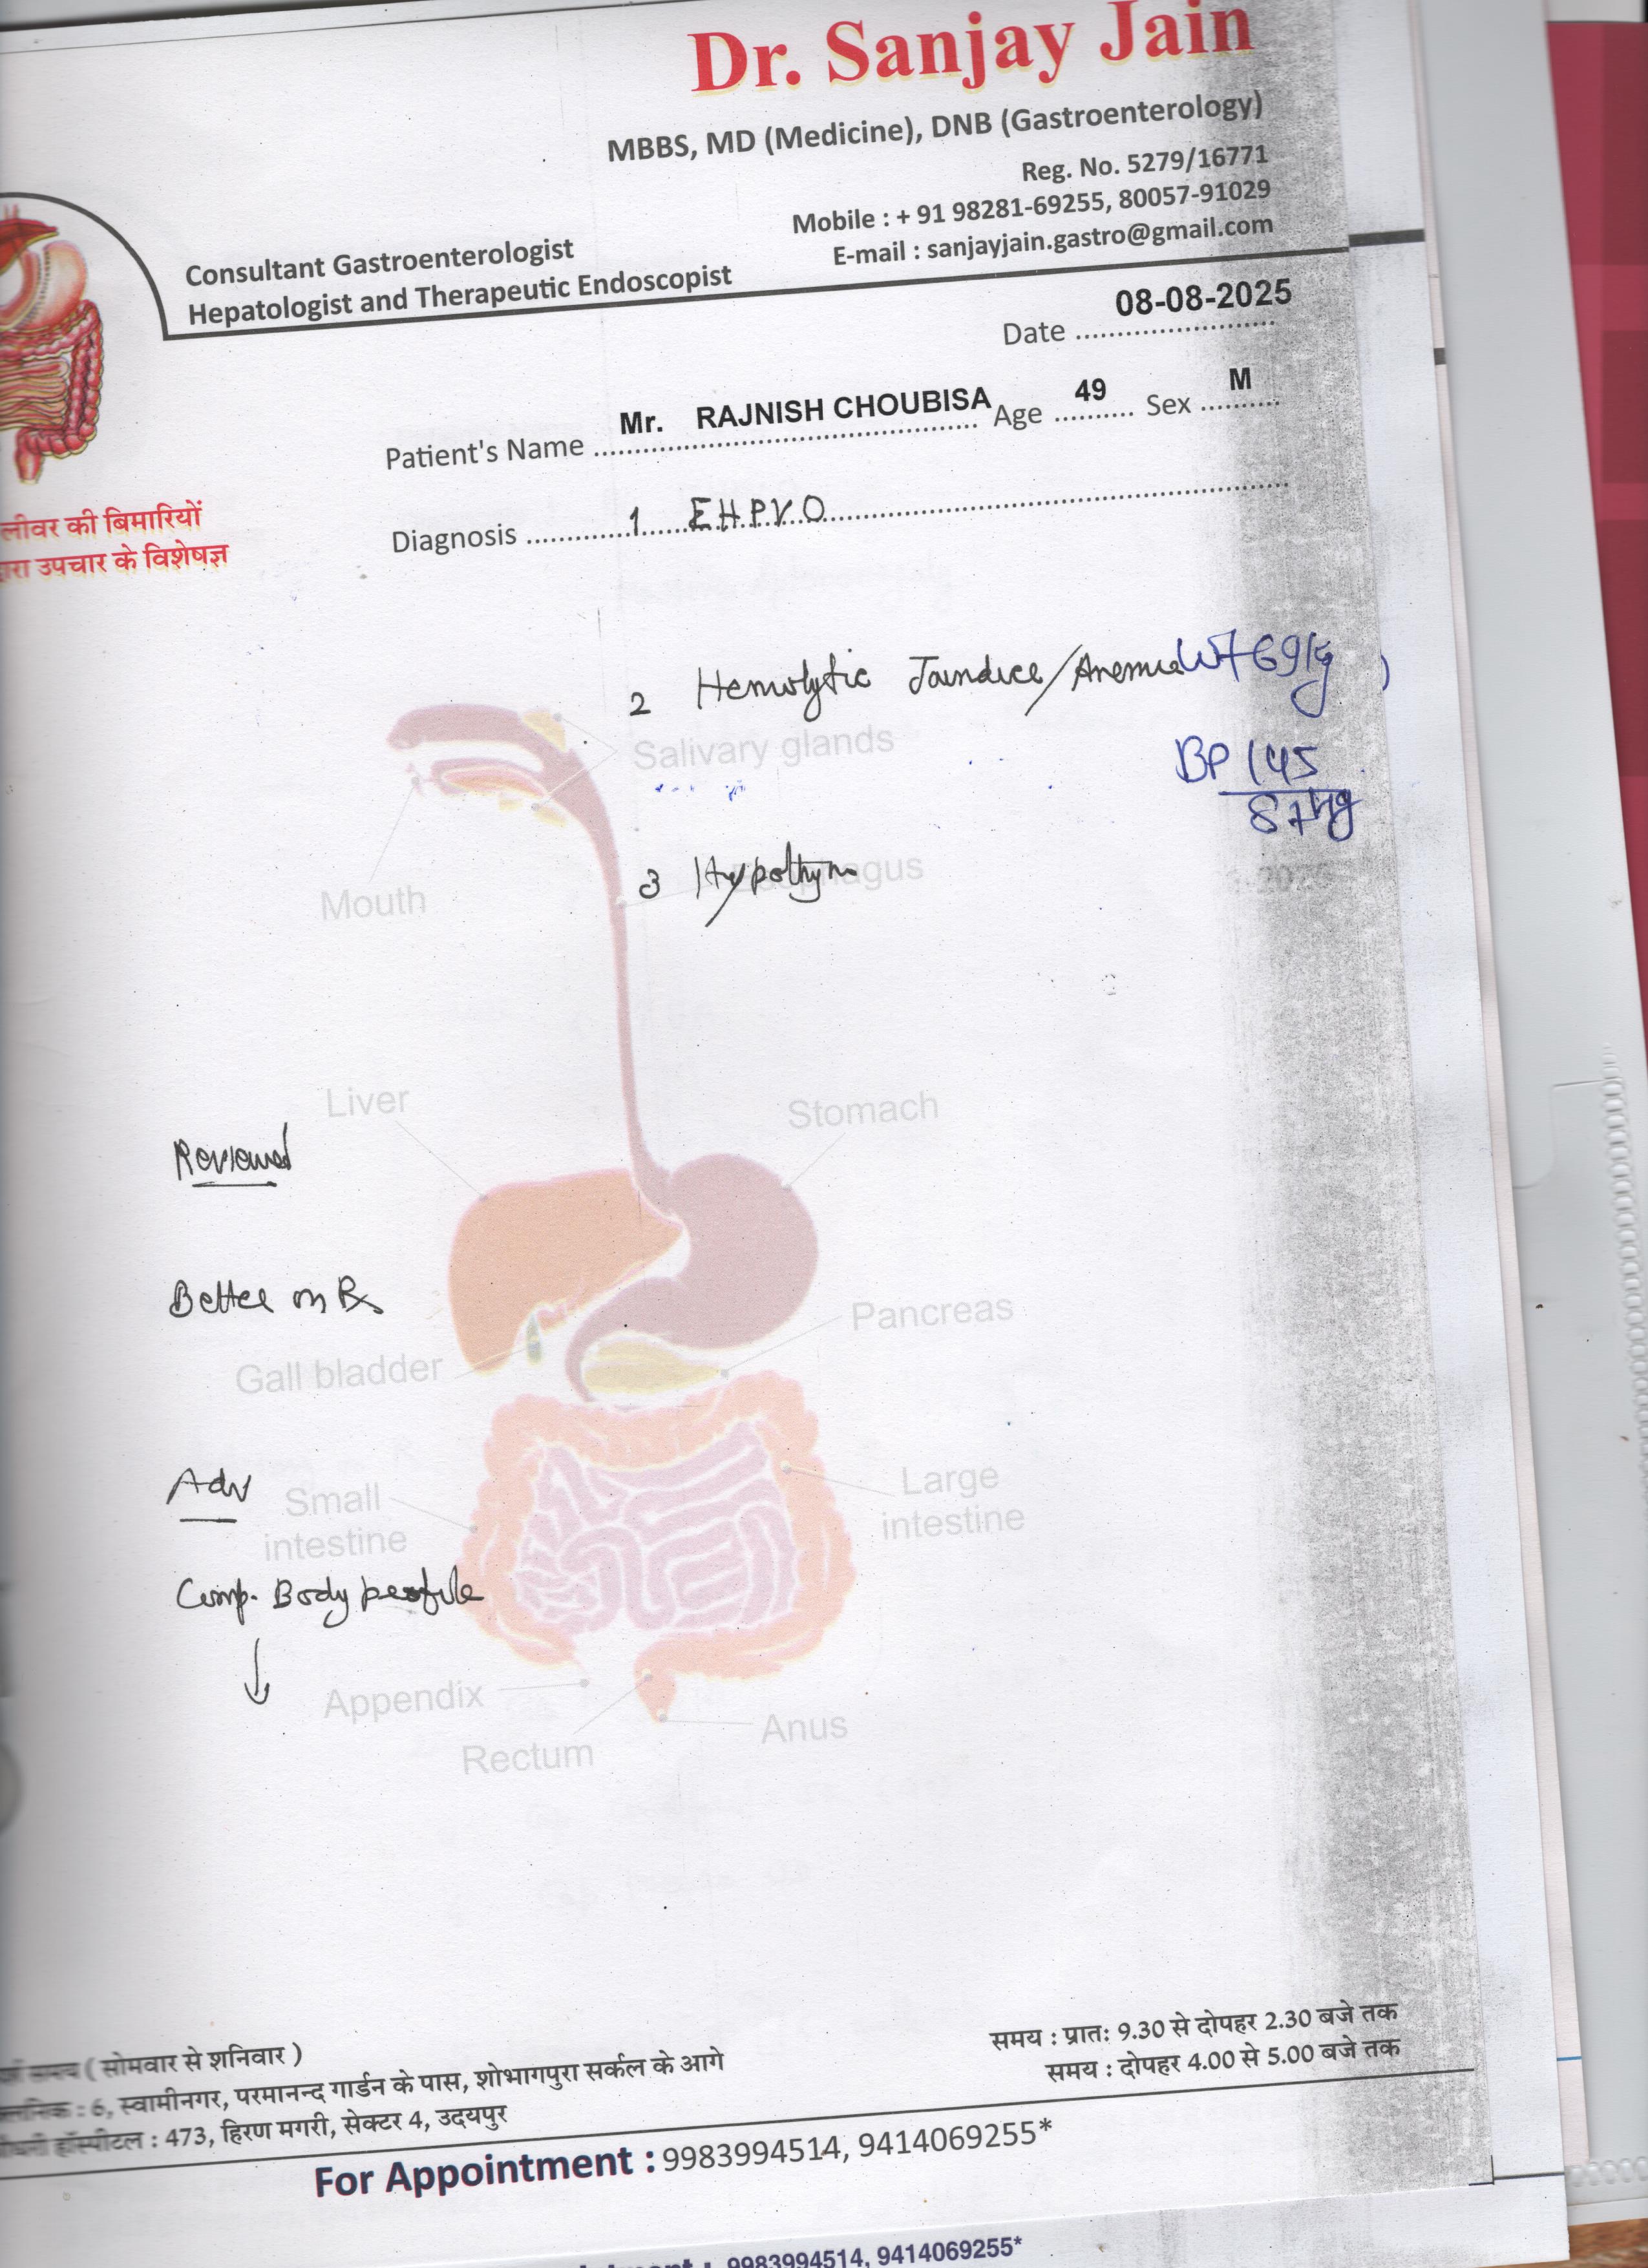 Dr. Sanjay Jain
MBBS, MD (Medicine), DNB (Gastroenterology)
Reg. No. 5279/16771
Mobile : + 91 98281-69255, 80057-91029
E-mail : sanjayjain.gastro@gmail.com
Consultant Gastroenterologist
Hepatologist and Therapeutic Endoscopist
Date 08-08-2025
Patient's Name Mr. RAJNISH CHOUBISA Age 49 Sex M
लीवर की बिमारियों
उपचार के विशेषज्ञ
Diagnosis 1 EHPVO
2 Hemolytic Jaundice/Anemia
Wt 69 kg
Salivary glands
BP 145
87
3 Hypothyr
Mouth
Liver
Stomach
Reviewed
Better on Rx
Pancreas
Gall bladder
Adv
Small
intestine
Large
intestine
Comp. Body profile
↓
Appendix
Anus
Rectum
( सोमवार से शनिवार )
समय : प्रातः 9.30 से दोपहर 2.30 बजे तक
: 6, स्वामीनगर, परमानन्द गार्डन के पास, शोभागपुरा सर्कल के आगे
समय : दोपहर 4.00 से 5.00 बजे तक
हॉस्पीटल : 473, हिरण मगरी, सेक्टर 4, उदयपुर
For Appointment : 9983994514, 9414069255*
: 9983994514, 9414069255*